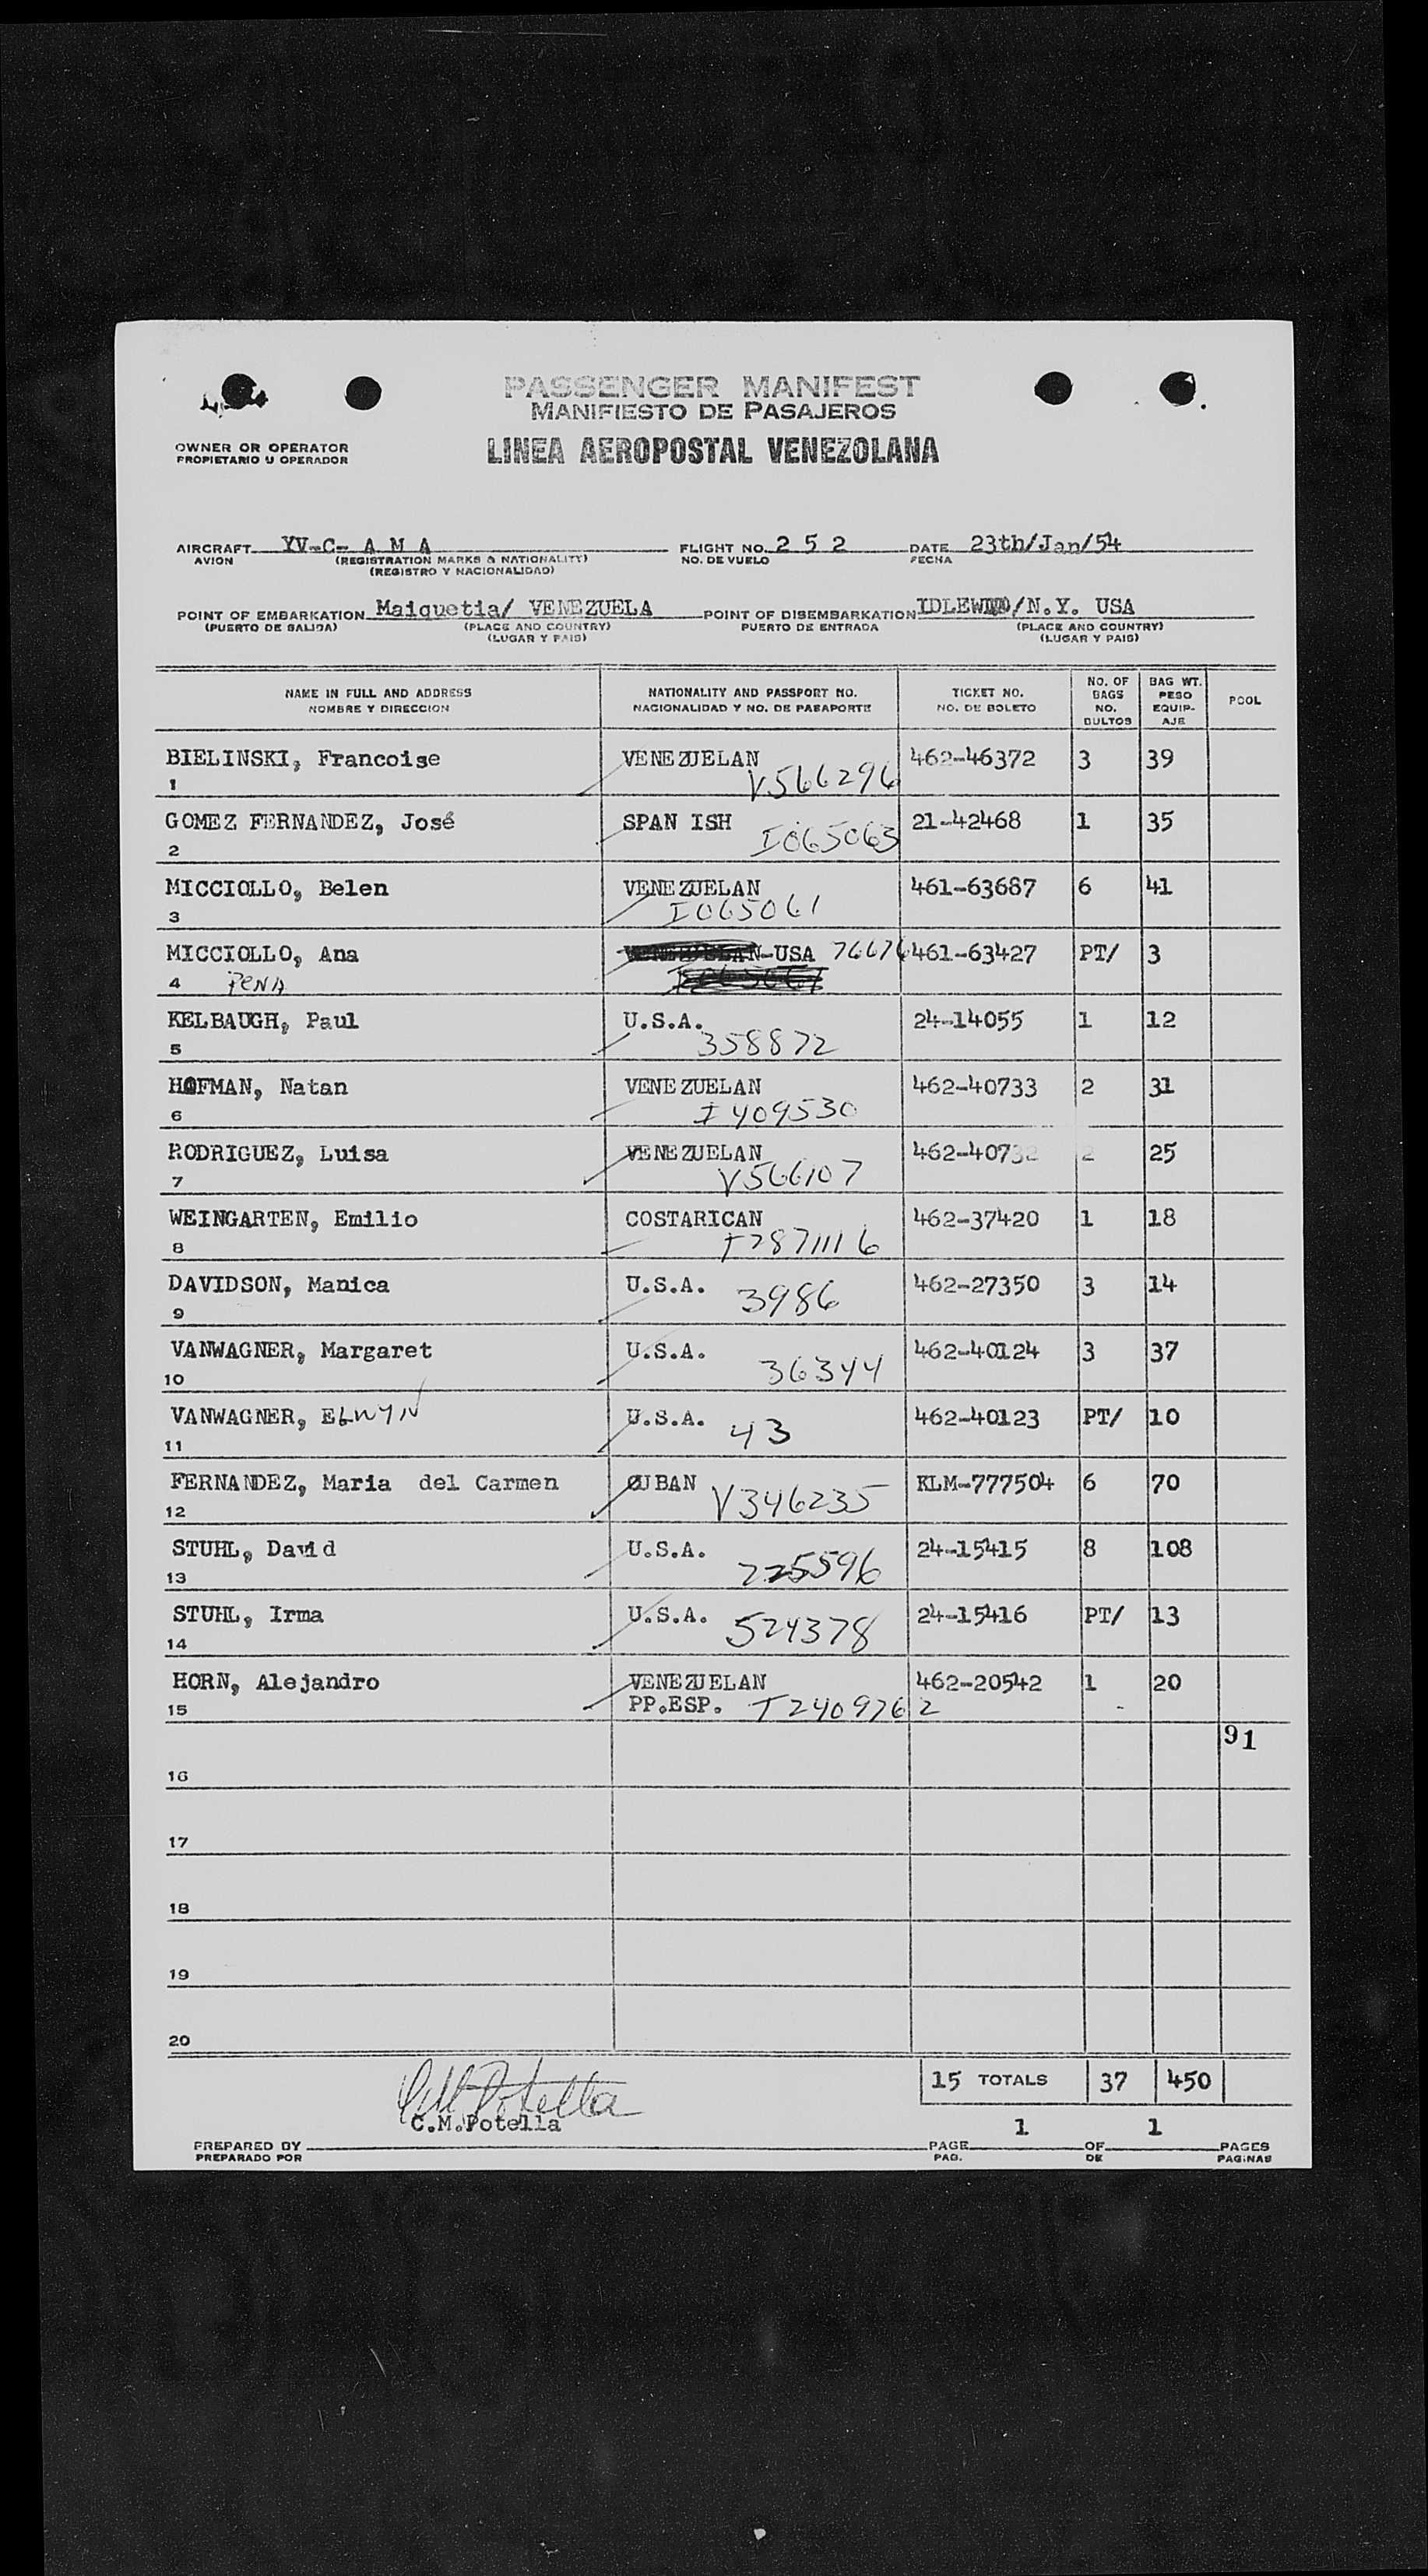 PASSENGER MANIFEST
MANIFIESTO DE PASAJEROS
OWNER OR OPERATOR
PROPIETARIO U OPERADOR
LINEA AEROPOSTAL VENEZOLANA
AIRCRAFT YV-C- A M A FLIGHT NO. 2 5 2 DATE 23th/Jan/54
AVION (REGISTRATION MARKS & NATIONALITY) NO. DE VUELO FECHA
(REGISTRO Y NACIONALIDAD)
POINT OF EMBARKATION Maiquetia/ VENEZUELA POINT OF DISEMBARKATION IDLEWILD/N.Y. USA
(PUERTO DE SALIDA) (PLACE AND COUNTRY) PUERTO DE ENTRADA (PLACE AND COUNTRY)
(LUGAR Y PAIS) (LUGAR Y PAIS)
NAME IN FULL AND ADDRESS NATIONALITY AND PASSPORT NO. TICKET NO. NO. OF BAGS BAG WT. POOL
NOMBRE Y DIRECCION NACIONALIDAD Y NO. DE PASAPORTE NO. DE BOLETO NO. BULTOS PESO EQUIP-AJE
BIELINSKI, Francoise VENEZUELAN 462-46372 3 39
1 V566296
GOMEZ FERNANDEZ, José SPAN ISH I065063 21-42468 1 35
2
MICCIOLLO, Belen VENEZUELAN 461-63687 6 41
3 I065061
MICCIOLLO, Ana VENEZUELAN-USA 76676 461-63427 PT/ 3
4 PENA
KELBAUGH, Paul U.S.A. 24-14055 1 12
5 358872
HOFMAN, Natan VENEZUELAN 462-40733 2 31
6 I409530
RODRIGUEZ, Luisa VENEZUELAN 462-40732 2 25
7 V566107
WEINGARTEN, Emilio COSTARICAN 462-37420 1 18
8 I2871116
DAVIDSON, Manica U.S.A. 3986 462-27350 3 14
9
VANWAGNER, Margaret U.S.A. 462-40124 3 37
10 36344
VANWAGNER, ELWYN U.S.A. 43 462-40123 PT/ 10
11
FERNANDEZ, Maria del Carmen CUBAN V346235 KLM-777504 6 70
12
STUHL, David U.S.A. 24-15415 8 108
13 225596
STUHL, Irma U.S.A. 524378 24-15416 PT/ 13
14
HORN, Alejandro VENEZUELAN 462-20542 1 20
15 PP.ESP. I2409762
91
16
17
18
19
20
15 TOTALS 37 450
C.M.Potella
1 1
PREPARED BY PAGE OF PAGES
PREPARADO POR PAG. DE PAGINAS